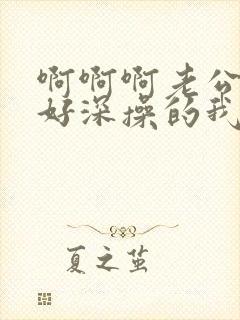 啊啊啊老公
好深操的我
夏之茧